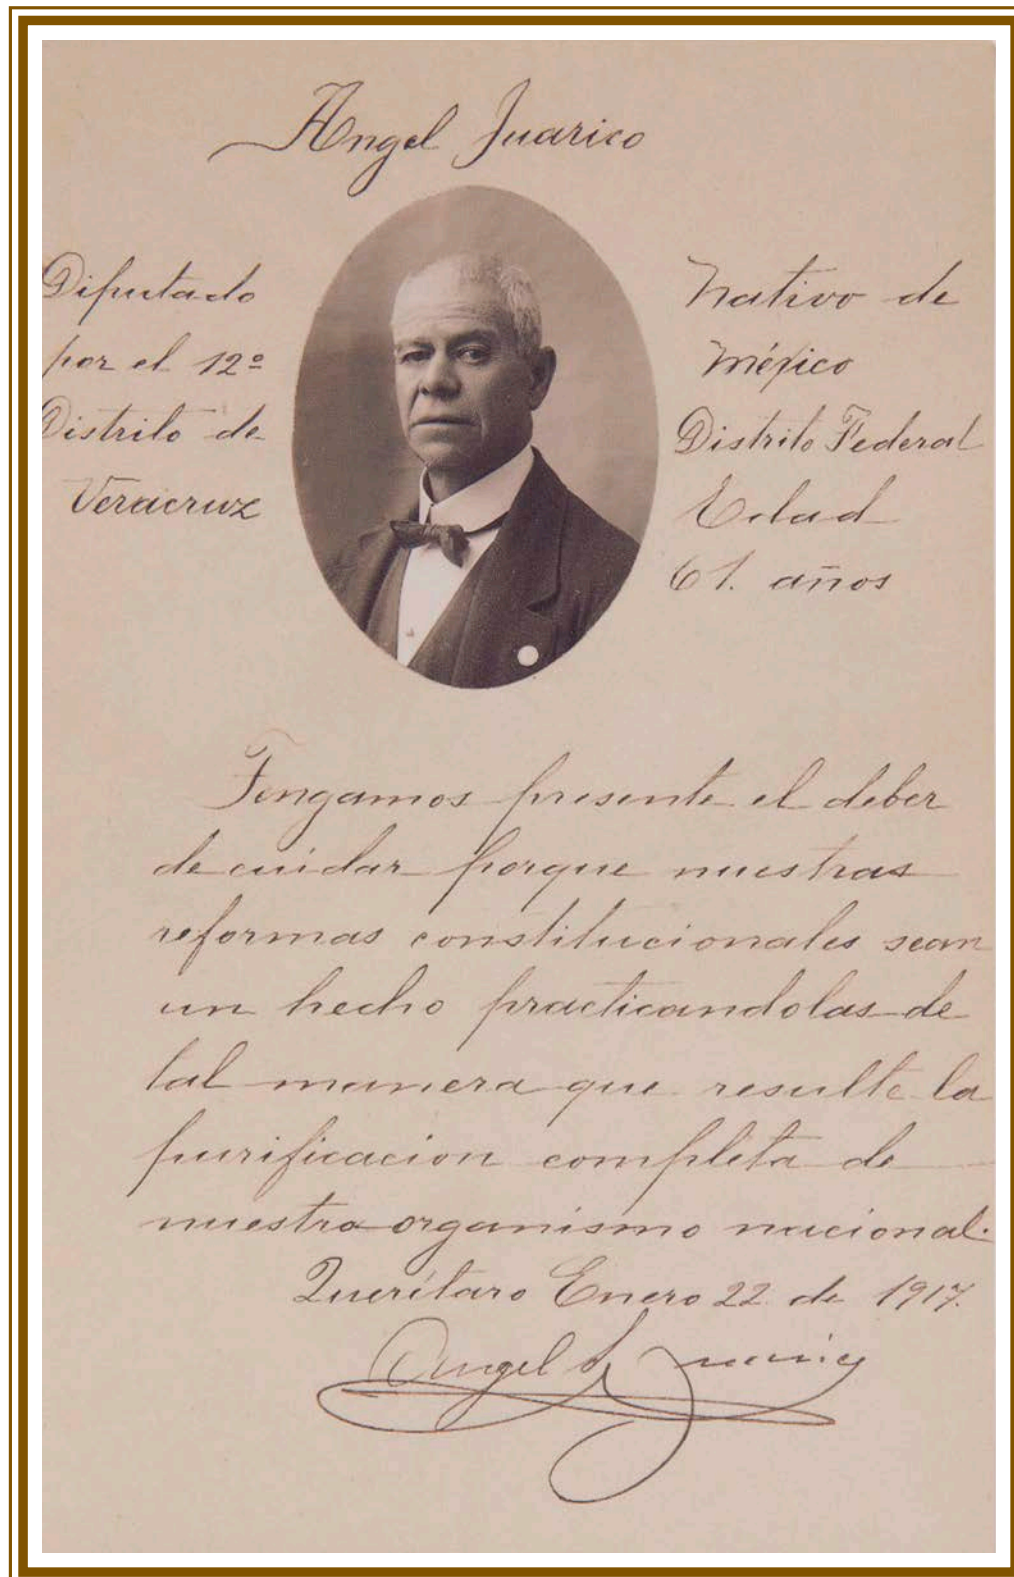 Angel Juarico
Diputado
por el 12º
Distrito de
Veracruz
Nativo de
México
Distrito Federal
Edad
61. años
Tengamos presente el deber
de cuidar porque nuestras
reformas constitucionales sean
un hecho practicandolas de
tal manera que resulte la
purificacion completa de
nuestro organismo nacional.
Querétaro Enero 22 de 1917.
Angel